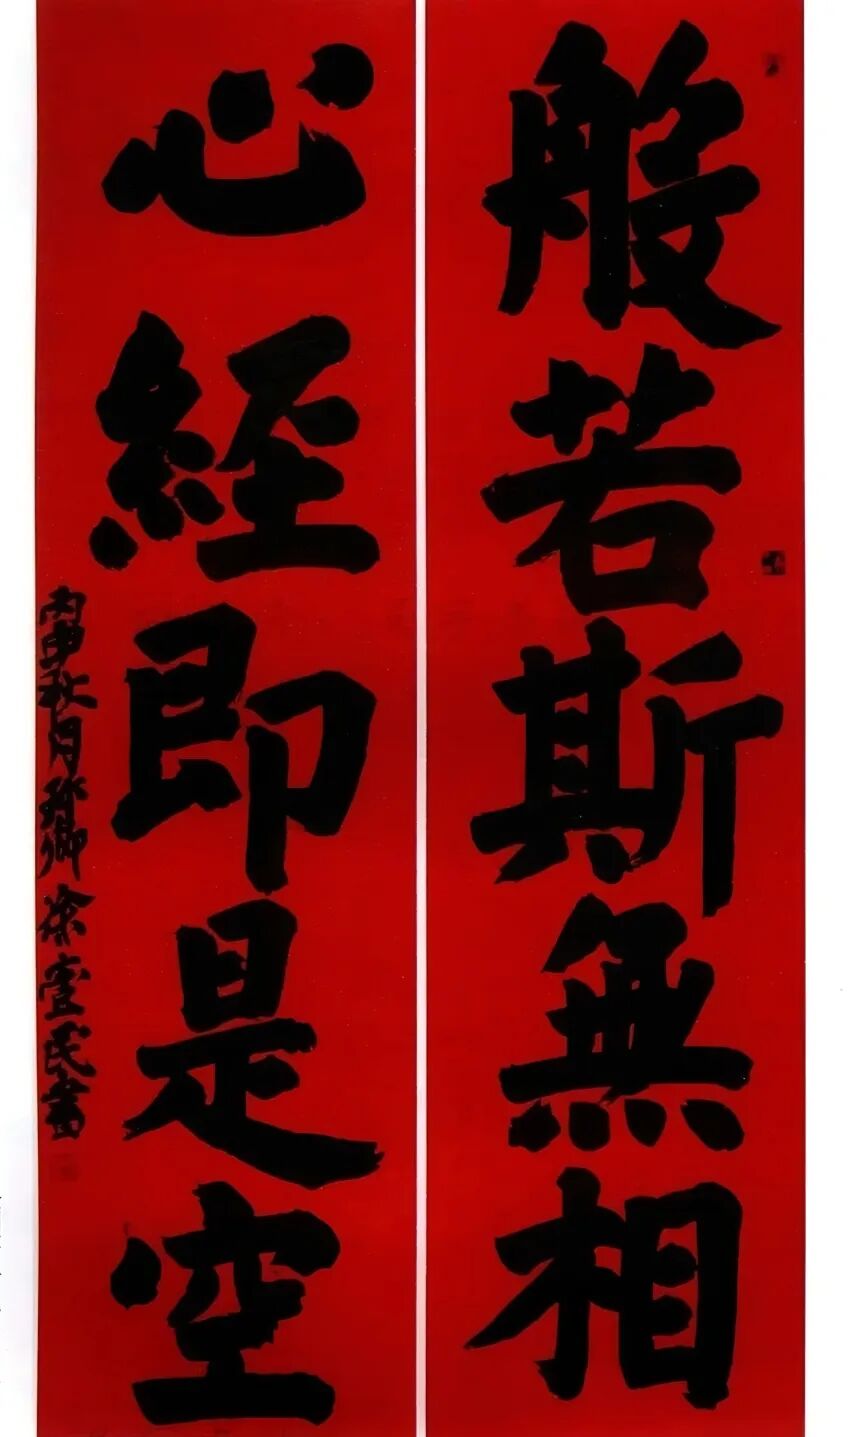 般若斯無相
心經即是空
丙申秋月於卿徐壹民書